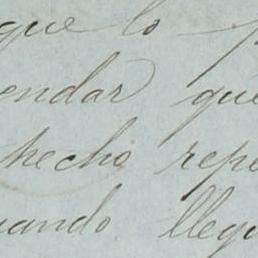 que lo p
endar que
hecho repe
uando llegu